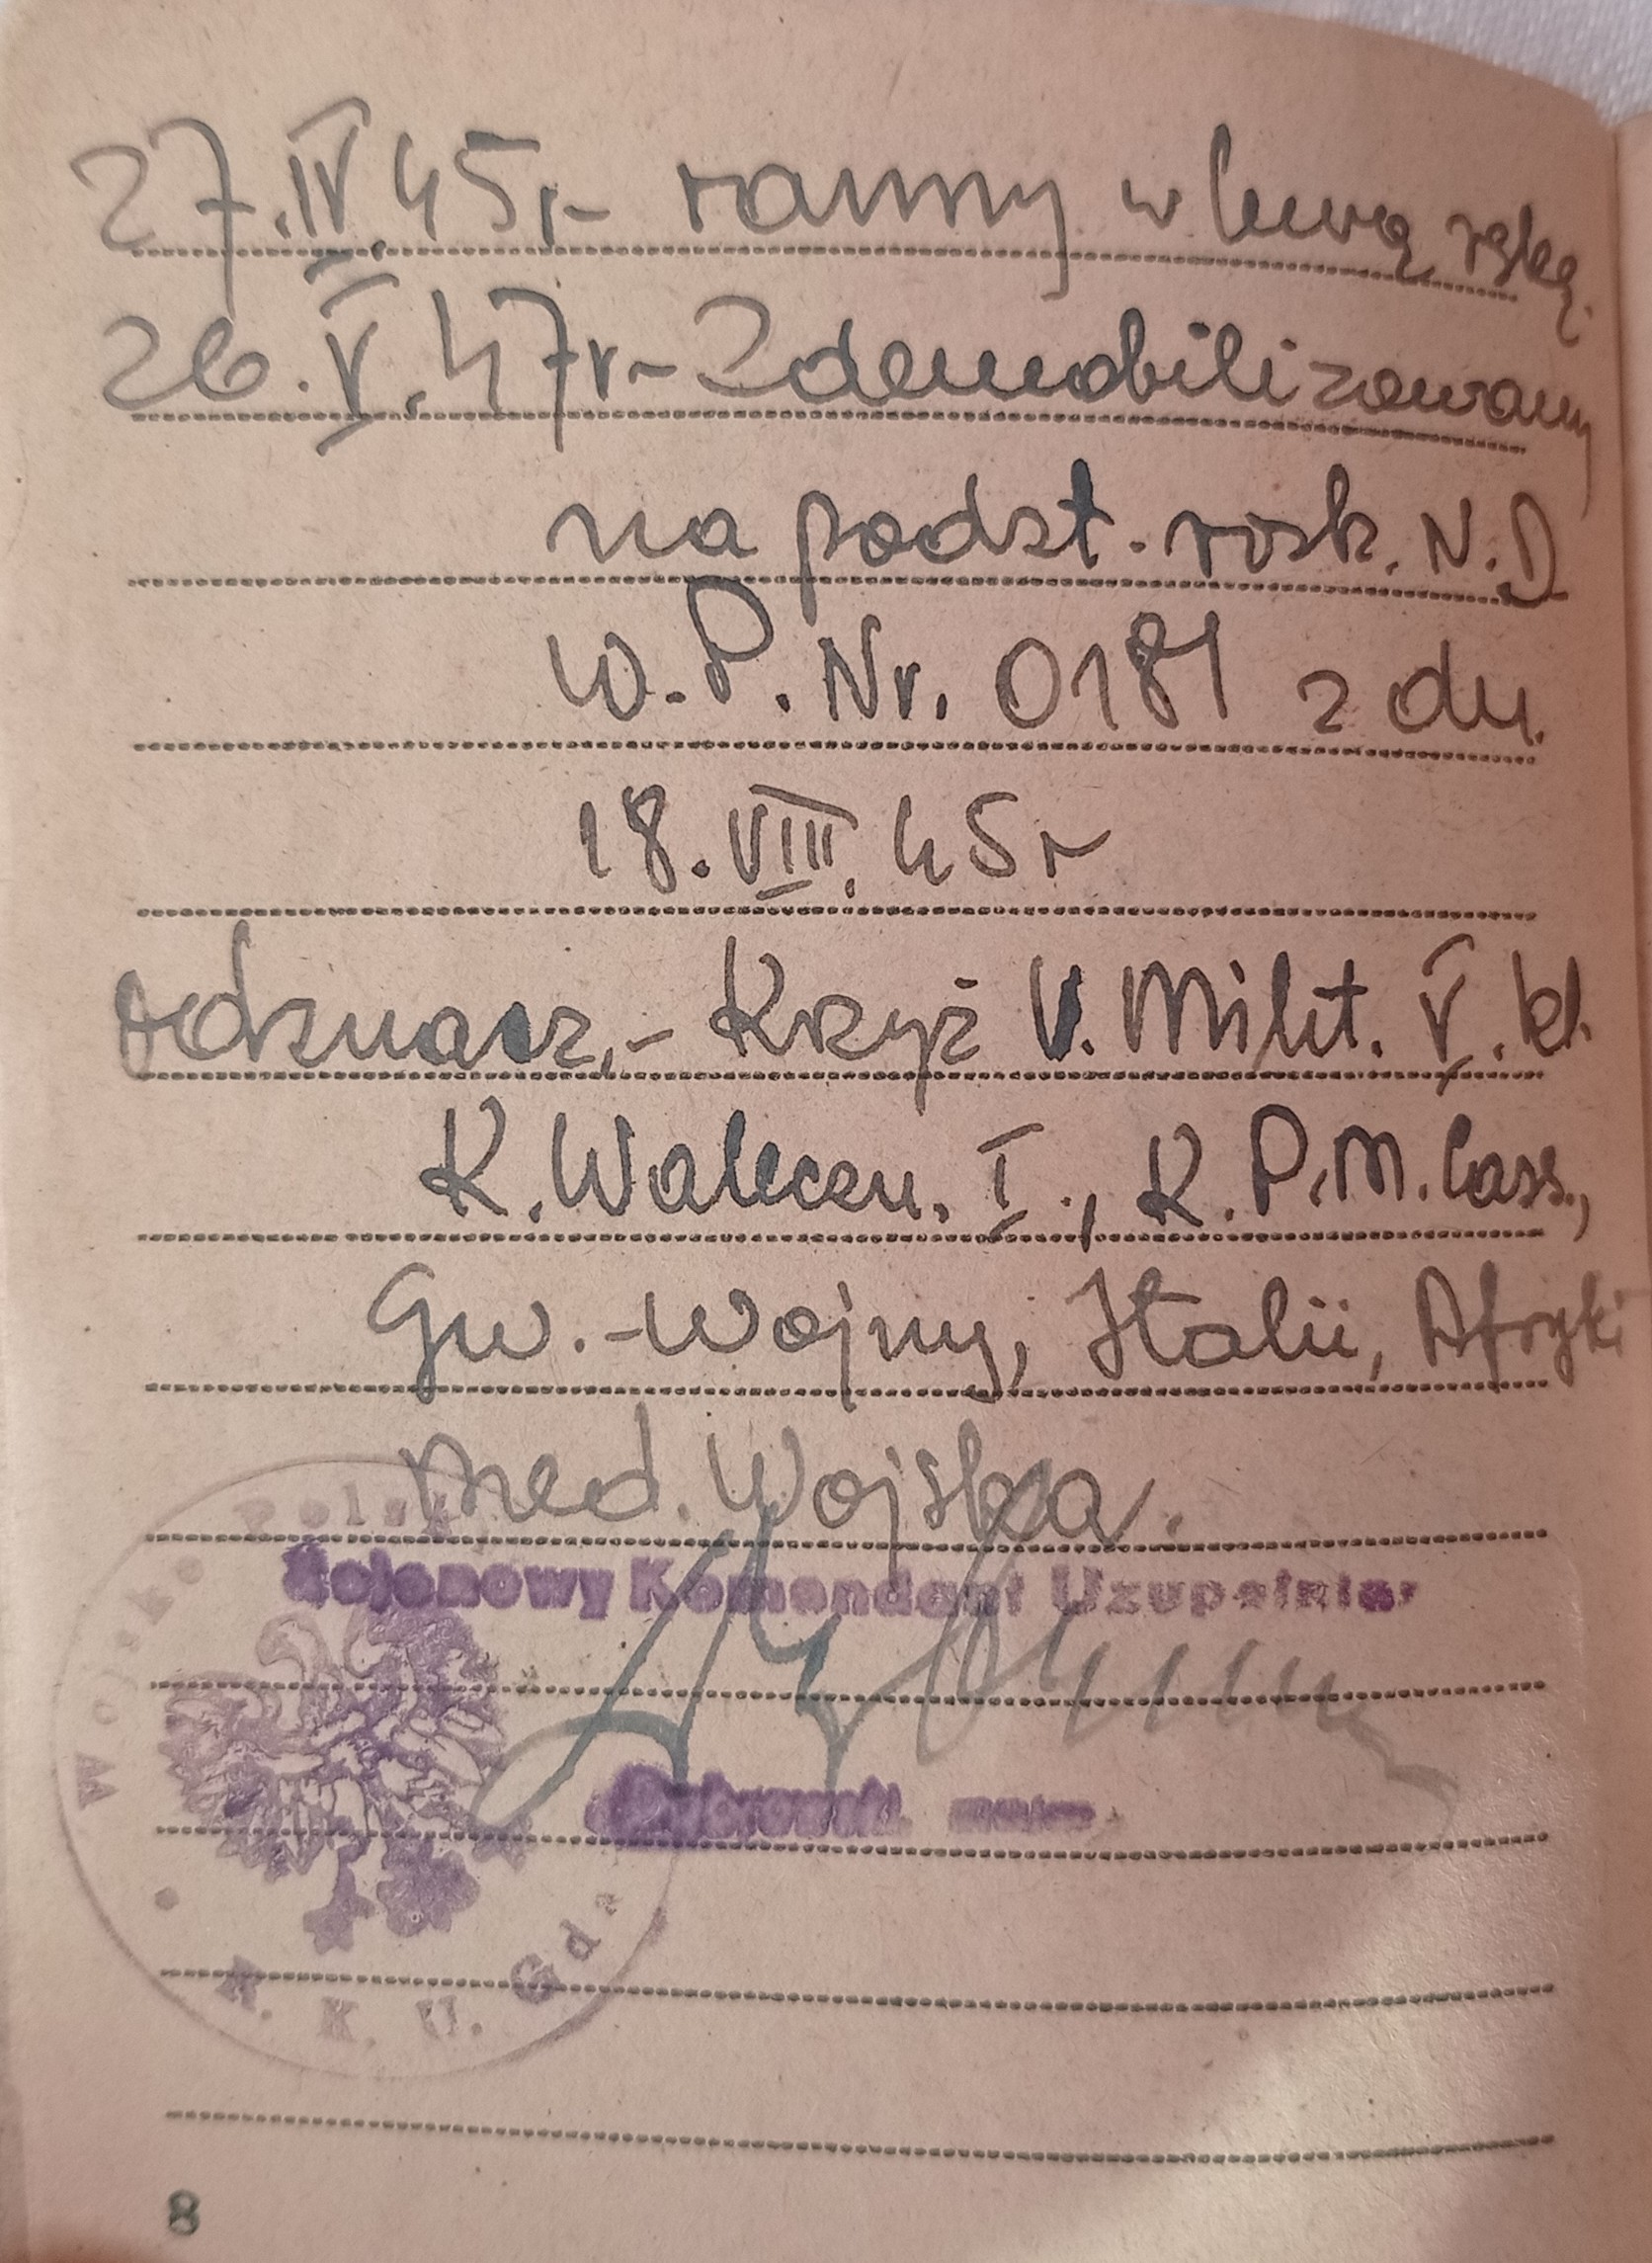 27.IV.45r- ranny w lewą rękę.
26.V.47r- Zdemobilizowany
na podst. rozk. N.D
W.P. Nr. 0181 z dn.
18.VIII.45r
odznacz,- Krzyż V. Milit. V. kl.
K. Waleczn. I., K.P.M. Cass.,
Gw.-Wojny, Italii, Afryki
Med. Wojska.
Wojsko Polsk
Rejonowy Komendant Uzupełnień
R. K. U. Gda
8